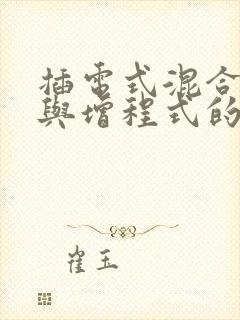 插電式混合
與增程式的
崔玉